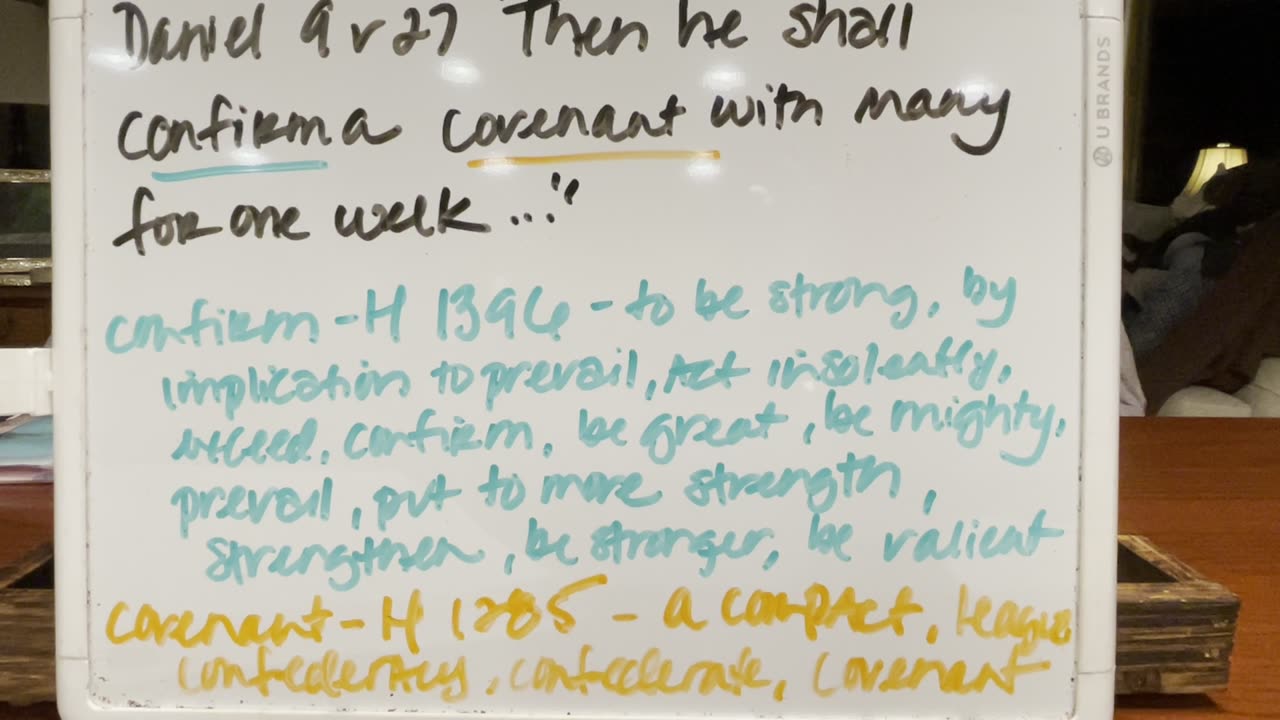 Daniel 9 v 27 "Then he shall
confirm a covenant with many
for one week..."
confirm - H 1396 - to be strong, by
implication to prevail, act insolently,
exceed, confirm, be great, be mighty,
prevail, put to more strength,
strengthen, be stronger, be valient
covenant - H 1285 - a compact, league
confederacy, confederate, covenant
U BRANDS